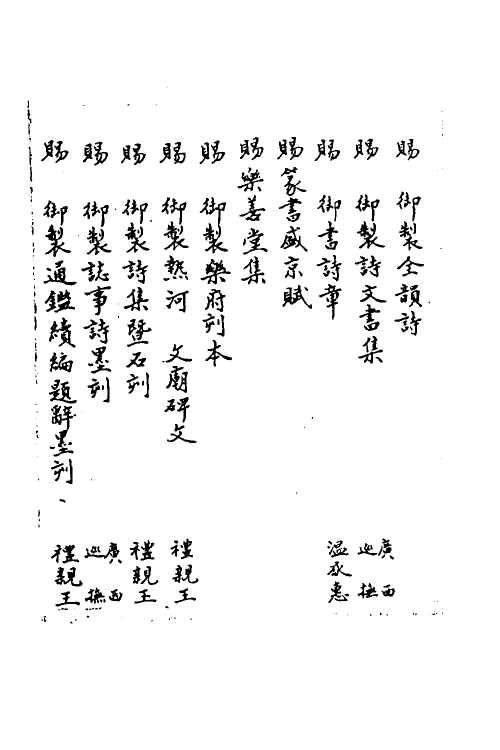 賜 御製全韻詩
賜 御製詩文書集 廣西巡撫
賜 御書詩章 溫承惠
賜篆書盛京賦
賜樂善堂集
賜 御製樂府刻本
賜 御製熱河 文廟碑文 禮親王
賜 御製詩集暨石刻 禮親王
賜 御製誌事詩墨刻 廣西巡撫
賜 御製通鑑續編題辭墨刻、 禮親王